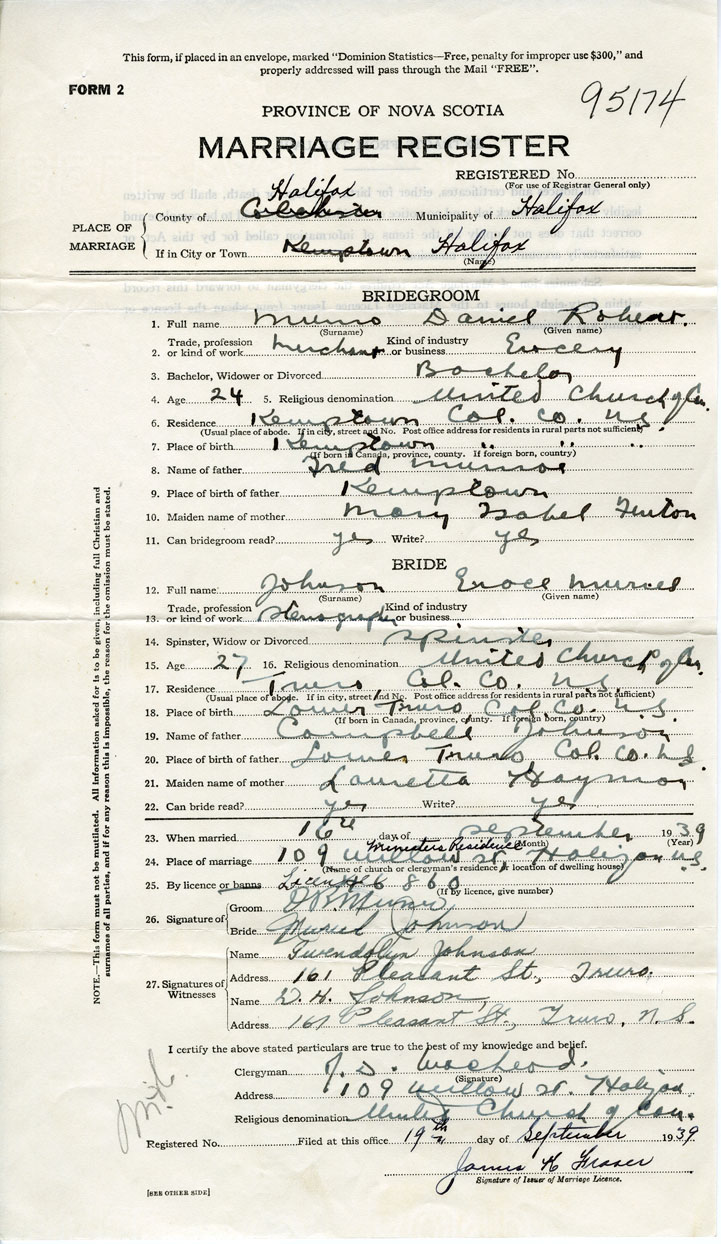 This form, if placed in an envelope, marked "Dominion Statistics—Free, penalty for improper use $300," and
properly addressed will pass through the Mail "FREE".
FORM 2
95174
PROVINCE OF NOVA SCOTIA
MARRIAGE REGISTER
REGISTERED No.
(For use of Registrar General only)
Halifax
PLACE OF MARRIAGE
County of Colchester Municipality of Halifax
If in City or Town Kemptown Halifax
(Name)
BRIDEGROOM
1. Full name Munro Daniel Robert.
(Surname) (Given name)
2. Trade, profession or kind of work Merchant Kind of industry or business Grocery
3. Bachelor, Widower or Divorced Bachelor
4. Age 24 5. Religious denomination United Church of Can.
6. Residence Kemptown Col. Co. N.S.
(Usual place of abode. If in city, street and No. Post office address for residents in rural parts not sufficient)
7. Place of birth Kemptown " " "
(If born in Canada, province, county. If foreign born, country)
8. Name of father Fred Munroe
9. Place of birth of father Kemptown
10. Maiden name of mother Mary Isabel Fenton
11. Can bridegroom read? yes Write? yes
BRIDE
12. Full name Johnson Grace Muriel
(Surname) (Given name)
13. Trade, profession or kind of work Stenographer Kind of industry or business
14. Spinster, Widow or Divorced Spinster
15. Age 27 16. Religious denomination United Church of Can.
17. Residence Truro, Col. Co. N.S.
(Usual place of abode. If in city, street and No. Post office address for residents in rural parts not sufficient)
18. Place of birth Lower Truro, Col. Co. N.S.
(If born in Canada, province, county. If foreign born, country)
19. Name of father Campbell Johnson
20. Place of birth of father Lower Truro Col. Co. N.S.
21. Maiden name of mother Lauretta Hayman
22. Can bride read? yes Write? yes
23. When married 16th day of September 1939
(Month) (Year)
Ministers Residence
24. Place of marriage 109 Willow St. Halifax N.S.
(Name of church or clergyman's residence or location of dwelling house)
25. By licence or banns Licen 46860
(If by licence, give number)
26. Signature of
Groom D R Munro
Bride Muriel Johnson
27. Signatures of Witnesses
Name Gwendolyn Johnson
Address 161 Pleasant St., Truro.
Name D. H. Johnson
Address 161 Pleasant St., Truro, N.S.
I certify the above stated particulars are true to the best of my knowledge and belief.
Clergyman J. D. MacLeod.
(Signature)
Address 109 Willow St. Halifax
Religious denomination United Church of Can.
Registered No. Filed at this office 19th day of September 1939
James K Fraser
Signature of Issuer of Marriage Licence.
[SEE OTHER SIDE]
NOTE.—This form must not be mutilated. All information asked for is to be given, including full Christian and
surnames of all parties, and if for any reason this is impossible, the reason for the omission must be stated.